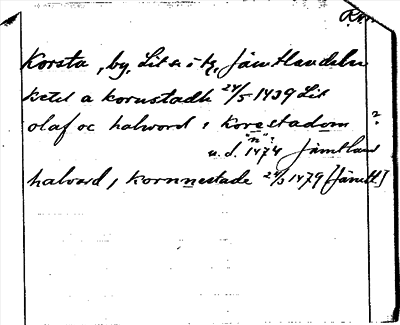 Korsta, by, Lits s:n o. tg, Jämtlands län
ketil a kornustadh 24/5 1439 Lit
olaf oc haluord i korestadom ?
"n"?
u. d. 1474 Jämtland
haluard i kornnestade 24/3 1479 [Jämtl]